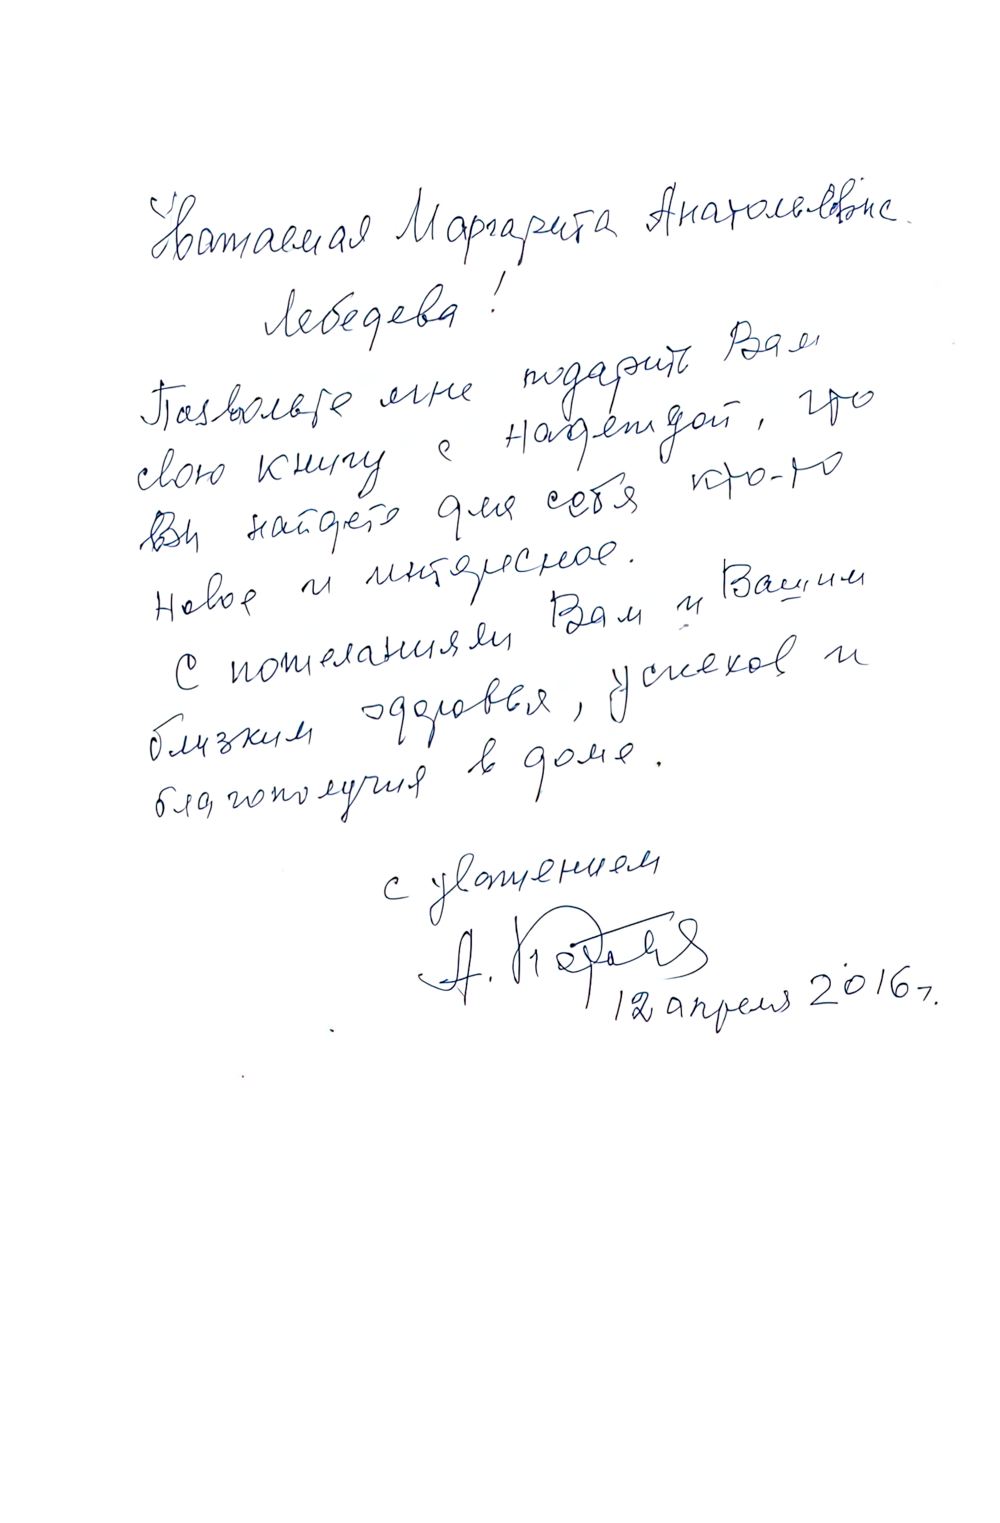 Уважаемая Маргарита Анатольевна
Лебедева!
Позвольте мне подарить Вам
свою книгу с надеждой, что
Вы найдете для себя кто-то
новое и интересное.
С пожеланиями Вам и Вашим
близким здоровья, успехов и
благополучия в доме.
с уважением
А.
12 апреля 2016г.